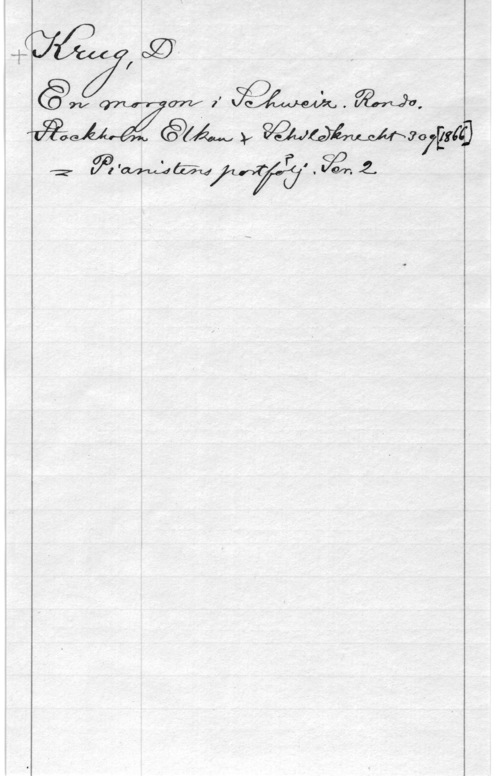 + Krug, D
En morgon i Schweiz. Rondo.
Stockholm Elkan & Schildknecht 309 [1866]
= Pianistens portfölj. Ser. 2